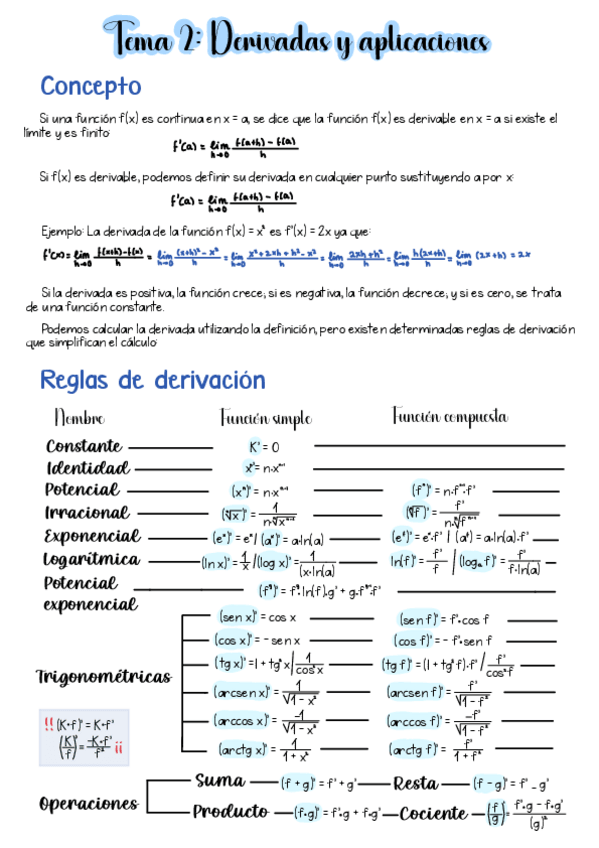 Tema 2: Derivadas y aplicaciones
Concepto
Si una función f(x) es continua en x = a, se dice que la función f(x) es derivable en x = a si existe el
límite y es finito:
f'(a) = lim h→0 f(a+h) - f(a) / h
Si f(x) es derivable, podemos definir su derivada en cualquier punto sustituyendo a por x:
f'(a) = lim h→0 f(a+h) - f(a) / h
Ejemplo: La derivada de la función f(x) = x² es f'(x) = 2x ya que:
f'(x) = lim h→0 f(x+h) - f(x) / h = lim h→0 (x+h)² - x² / h = lim h→0 x² + 2xh + h² - x² / h = lim h→0 2xh + h² / h = lim h→0 h(2x+h) / h = lim h→0 (2x + h) = 2x
Si la derivada es positiva, la función crece; si es negativa, la función decrece; y si es cero, se trata
de una función constante.
Podemos calcular la derivada utilizando la definición, pero existen determinadas reglas de derivación
que simplifican el cálculo:
Reglas de derivación
Nombre Función simple Función compuesta
Constante K' = 0
Identidad
Potencial (xⁿ)' = n·xⁿ⁻¹ (fⁿ)' = n·fⁿ⁻¹·f'
Irracional (ⁿ√x)' = 1 / n·ⁿ√xⁿ⁻¹ (ⁿ√f)' = f' / n·ⁿ√fⁿ⁻¹
Exponencial
Logarítmica (ln x)' = 1/x / (log x)' = 1 / (x·ln(a) ln(f)' = f'/f / (logₐ f)' = f' / f·ln(a)
Potencial
exponencial
Trigonométricas
(sen x)' = cos x (sen f)' = f'·cos f
(cos x)' = - sen x (cos f)' = - f'·sen f
(tg x)' = 1 + tg² x / 1 / cos² x (tg f)' = (1 + tg² f)·f' / f' / cos² f
(arcsen x)' = 1 / √1 - x² (arcsen f)' = f' / √1 - f²
(arccos x)' = -1 / √1 - x² (arccos f)' = -f' / √1 - f²
(arctg x)' = 1 / 1 + x² (arctg f)' = f' / 1 + f²
!! (K·f)' = K·f'
(K/f)' = -K·f' / f² ¡¡
Operaciones
Suma (f + g)' = f' + g' Resta (f - g)' = f' - g'
Producto (f·g)' = f'·g + f·g' Cociente (f/g)' = f'·g - f·g' / (g)²